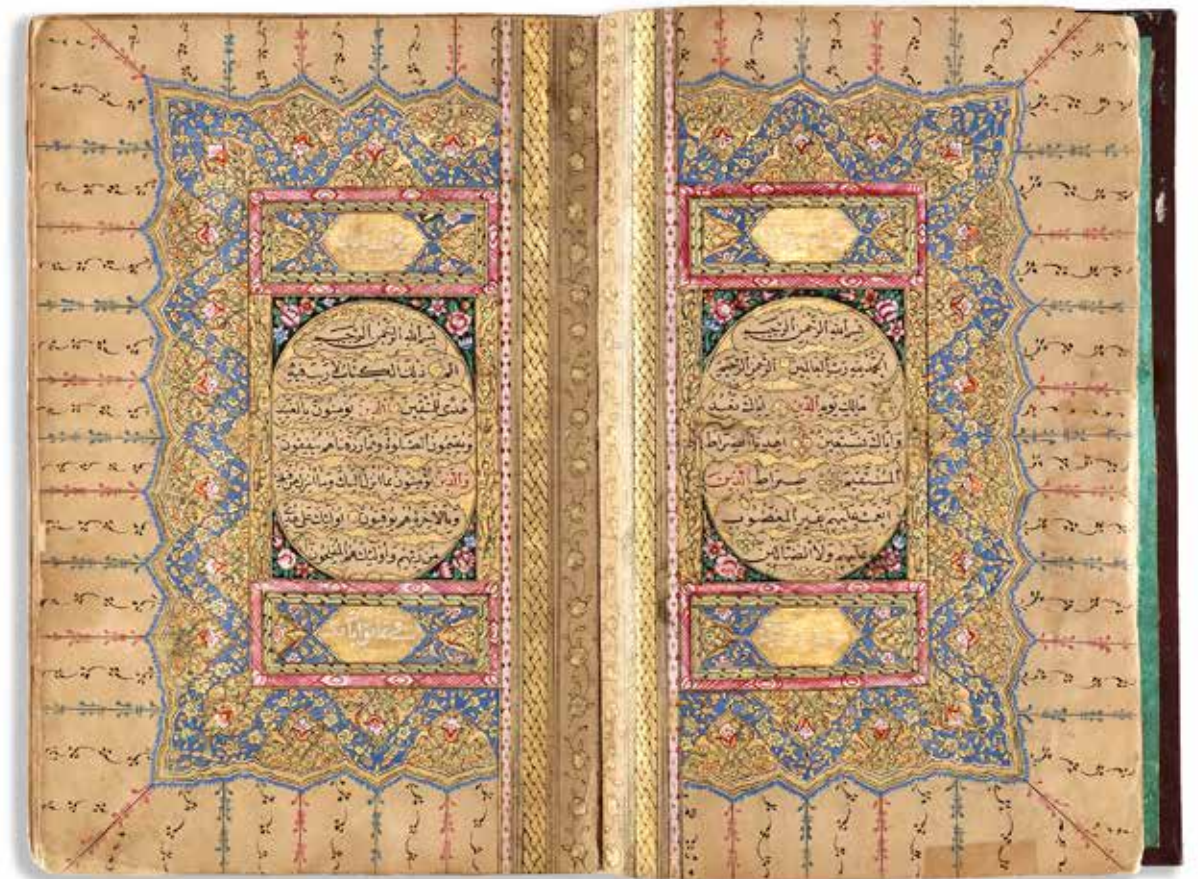 بسم الله الرحمن الرحيم
الحمد لله رب العالمين الرحمن الرحيم
مالك يوم الدين اياك نعبد
واياك نستعين اهدنا الصراط
المستقيم صراط الذين
انعمت عليهم غير المغضوب
عليهم ولا الضالين
بسم الله الرحمن الرحيم
الم ذلك الكتاب لا ريب فيه
هدى للمتقين الذين يؤمنون بالغيب
ويقيمون الصلوة ومما رزقناهم ينفقون
والذين يؤمنون بما انزل اليك وما انزل من قبلك
وبالاخرة هم يوقنون اولئك على هدى
من ربهم واولئك هم المفلحون